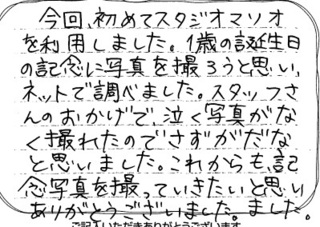 今回、初めてスタジオマソオ
を利用しました。1歳の誕生日
の記念に写真を撮ろうと思い、
ネットで調べました。スタッフさ
んのおかげで、泣く写真がな
く撮れたのでさすがだな
と思いました。これからも、記
念写真を撮っていきたいと思い
ありがとうございました。ました。
ご記入いただきありがとうございます